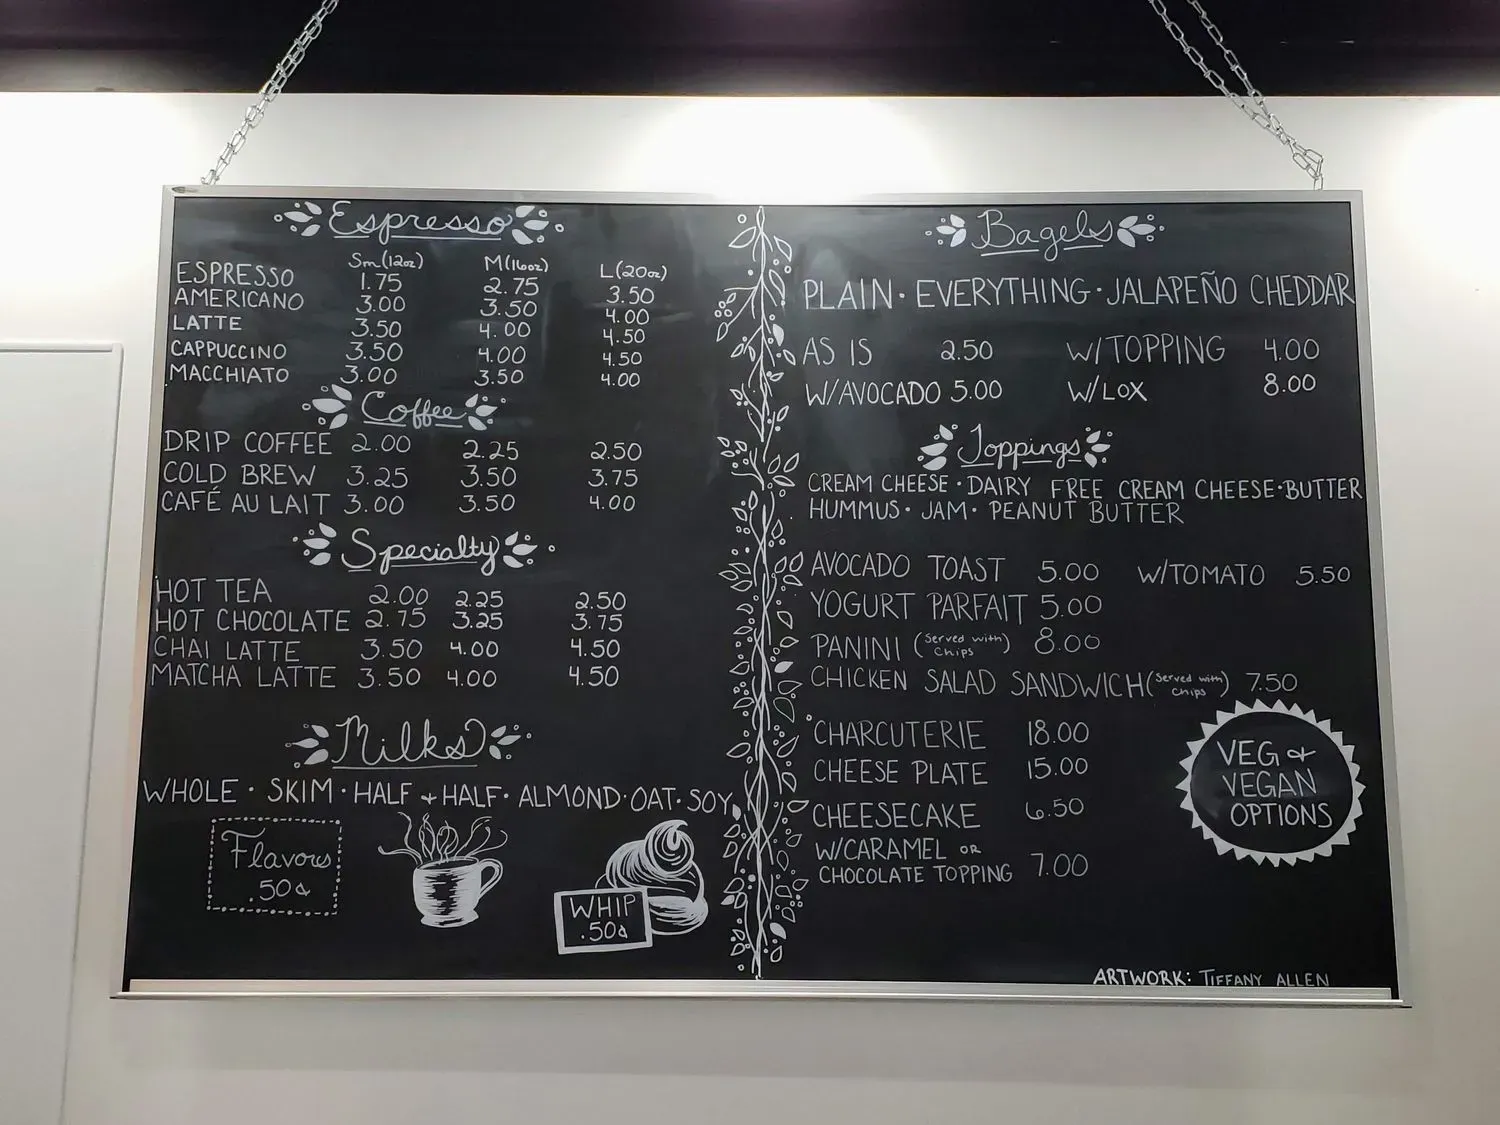 Espresso
Sm(12oz) M(16oz) L(20oz)
ESPRESSO 1.75 2.75 3.50
AMERICANO 3.00 3.50 4.00
LATTE 3.50 4.00 4.50
CAPPUCCINO 3.50 4.00 4.50
MACCHIATO 3.00 3.50 4.00
Coffee
DRIP COFFEE 2.00 2.25 2.50
COLD BREW 3.25 3.50 3.75
CAFÉ AU LAIT 3.00 3.50 4.00
Specialty
HOT TEA 2.00 2.25 2.50
HOT CHOCOLATE 2.75 3.25 3.75
CHAI LATTE 3.50 4.00 4.50
MATCHA LATTE 3.50 4.00 4.50
Milks
WHOLE · SKIM · HALF & HALF · ALMOND · OAT · SOY
Flavors
.50¢
WHIP
.50¢
Bagels
PLAIN · EVERYTHING · JALAPEÑO CHEDDAR
AS IS 2.50 W/TOPPING 4.00
W/AVOCADO 5.00 W/LOX 8.00
Toppings
CREAM CHEESE · DAIRY FREE CREAM CHEESE · BUTTER
HUMMUS · JAM · PEANUT BUTTER
AVOCADO TOAST 5.00 W/TOMATO 5.50
YOGURT PARFAIT 5.00
PANINI (Served with chips) 8.00
CHICKEN SALAD SANDWICH (Served with chips) 7.50
CHARCUTERIE 18.00
CHEESE PLATE 15.00
CHEESECAKE 6.50
W/CARAMEL OR
CHOCOLATE TOPPING 7.00
VEG &
VEGAN
OPTIONS
ARTWORK: TIFFANY ALLEN